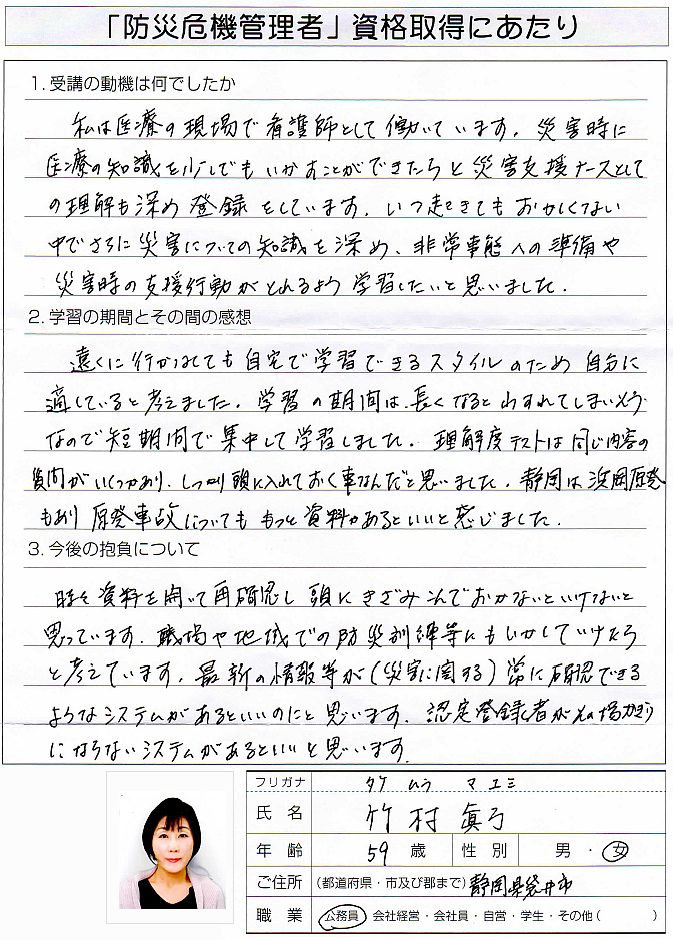 「防災危機管理者」資格取得にあたり
1. 受講の動機は何でしたか
私は医療の現場で看護師として働いています。災害時に
医療の知識を少しでもいかすことができたらと災害支援ナースとして
の理解も深め登録をしています。いつ起きてもおかしくない
中でさらに災害についての知識を深め、非常事態への準備や
災害時の支援行動がとれるよう学習したいと思いました。
2. 学習の期間とその間の感想
遠くに行かなくても自宅で学習できるスタイルのため自分に
適していると考えました。学習の期間は、長くなるとわすれてしまいそう
なので短期間で集中して学習しました。理解度テストは同じ内容の
質問がいくつかあり、しっかり頭に入れておく事なんだと思いました。静岡は浜岡原発
もあり原発事故についてももっと資料があるといいと感じました。
3. 今後の抱負について
時々資料を開いて再確認し頭にきざみこんでおかないといけないと
思っています。職場や地域での防災訓練等にもいかしていけたら
と考えています。最新の情報等が(災害に関する)常に確認できる
ようなシステムがあるといいのにと思います。認定登録者がその場かぎり
にならないシステムがあるといいと思います。
フリガナ タケ ムラ マユミ
氏名 竹村 眞弓
年齢 59 歳 性別 男・女
ご住所 (都道府県・市及び郡まで) 静岡県袋井市
職業 公務員 会社経営・会社員・自営・学生・その他( )